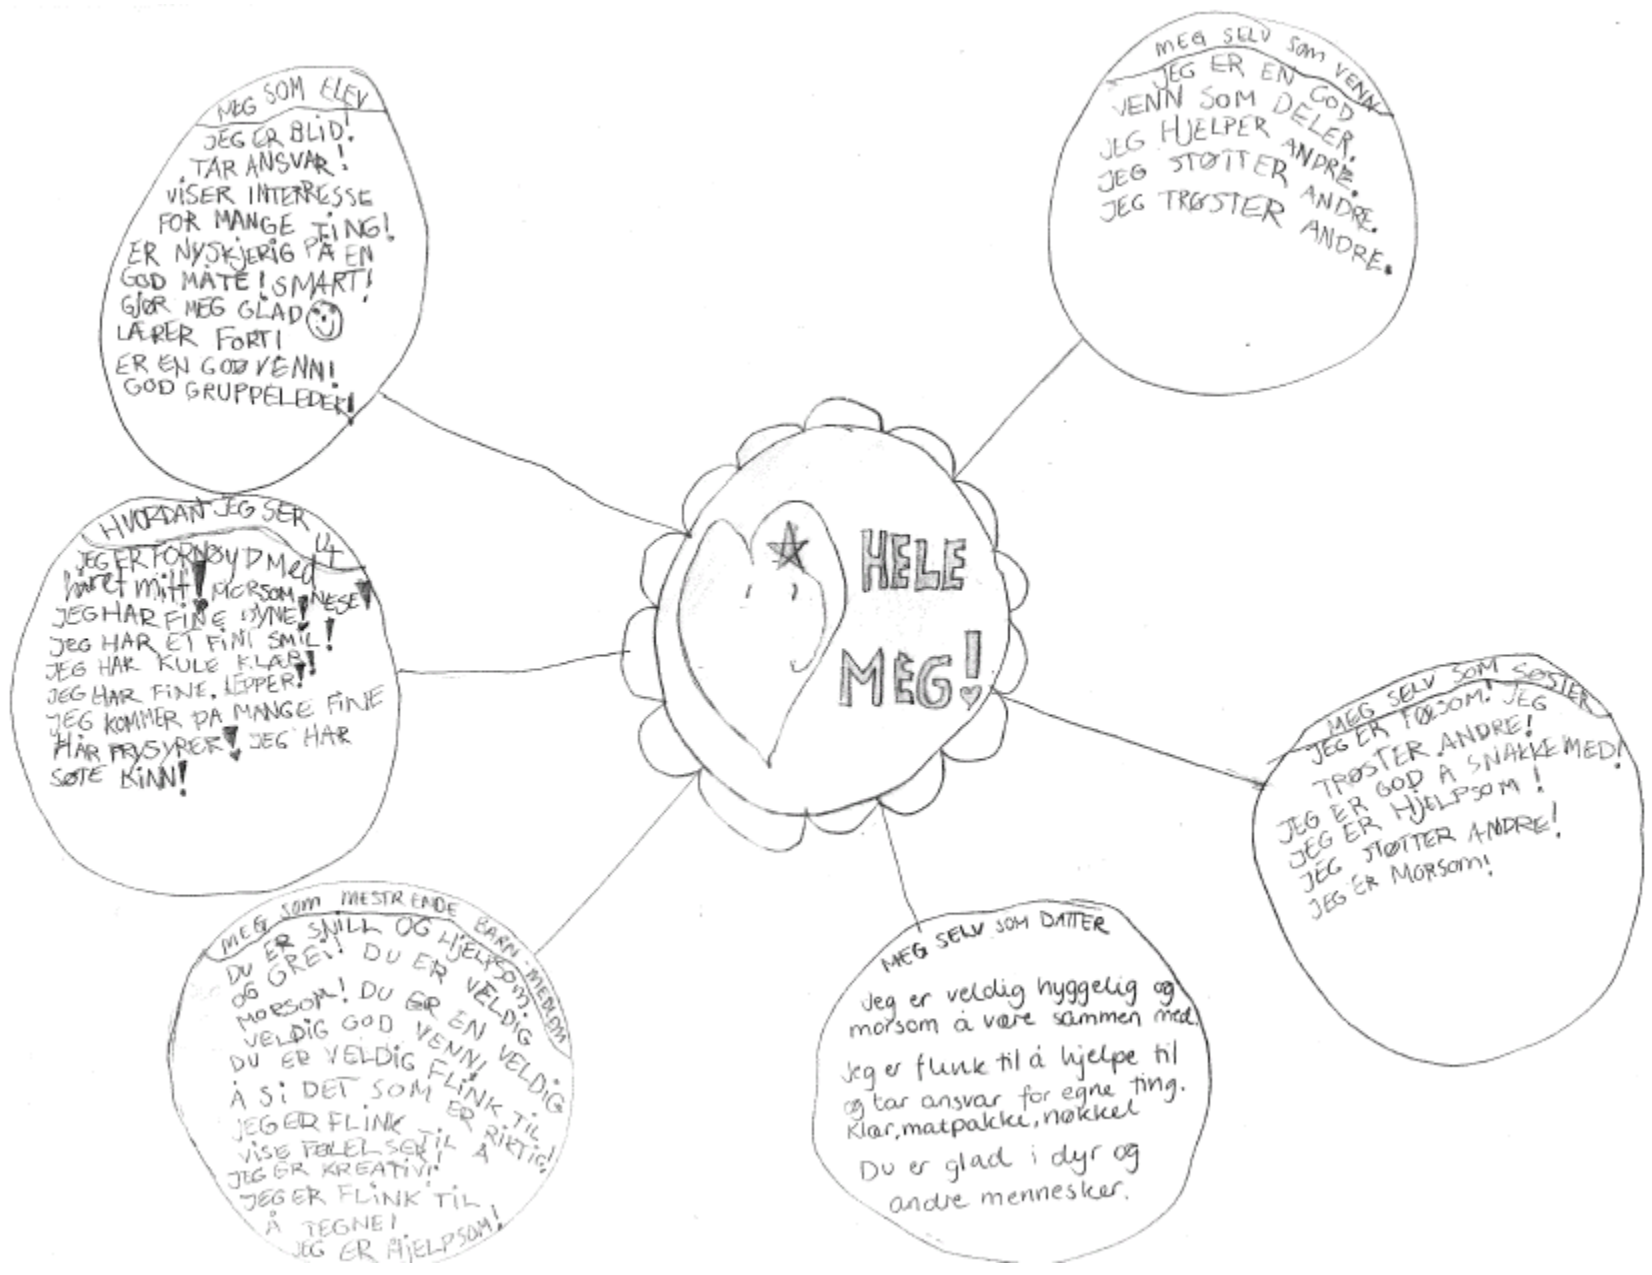 MEG SOM ELEV
JEG ER BLID!
TAR ANSVAR!
VISER INTERRESSE
FOR MANGE TING!
ER NYSKJERIG PÅ EN
GOD MÅTE! SMART!
GJØR MEG GLAD
LÆRER FORT!
ER EN GOD VENN!
GOD GRUPPELEDER!
MEG SELV SOM VENN
JEG ER EN GOD
VENN SOM DELER.
JEG HJELPER ANDRE.
JEG STØTTER ANDRE.
JEG TRØSTER ANDRE.
HVORDAN JEG SER UT
JEG ER FORNØYD Med
håret mitt! MORSOM NESE!
JEG HAR FINE ØYNE!
JEG HAR ET FINT SMIL!
JEG HAR KULE KLÆR!
JEG HAR FINE LEPPER!
JEG KOMMER PÅ MANGE FINE
HÅR FRYSYRER! JEG HAR
SØTE KINN!
HELE
MEG!
MEG SELV SOM SØSTER
JEG ER FØLSOM! JEG
TRØSTER ANDRE!
JEG ER GOD Å SNAKKE MED!
JEG ER HJELPSOM!
JEG STØTTER ANDRE!
JEG ER MORSOM!
MEG SOM MESTRENDE BARN-MEDLEM
DU ER SNILL OG HJELPSOM
OG GREI! DU ER VELDIG
MORSOM! DU ER EN VELDIG
VELDIG GOD VENN!
DU ER VELDIG FLINK TIL
Å SI DET SOM ER RIKTIG!
JEG ER FLINK TIL Å
VISE FØLELSER!
JEG ER KREATIV!
JEG ER FLINK TIL
Å TEGNE!
JEG ER HJELPSOM!
MEG SELV SOM DATTER
Jeg er veldig hyggelig og
morsom å være sammen med.
Jeg er flink til å hjelpe til
og tar ansvar for egne ting.
Klær, matpakke, nøkkel
Du er glad i dyr og
andre mennesker.